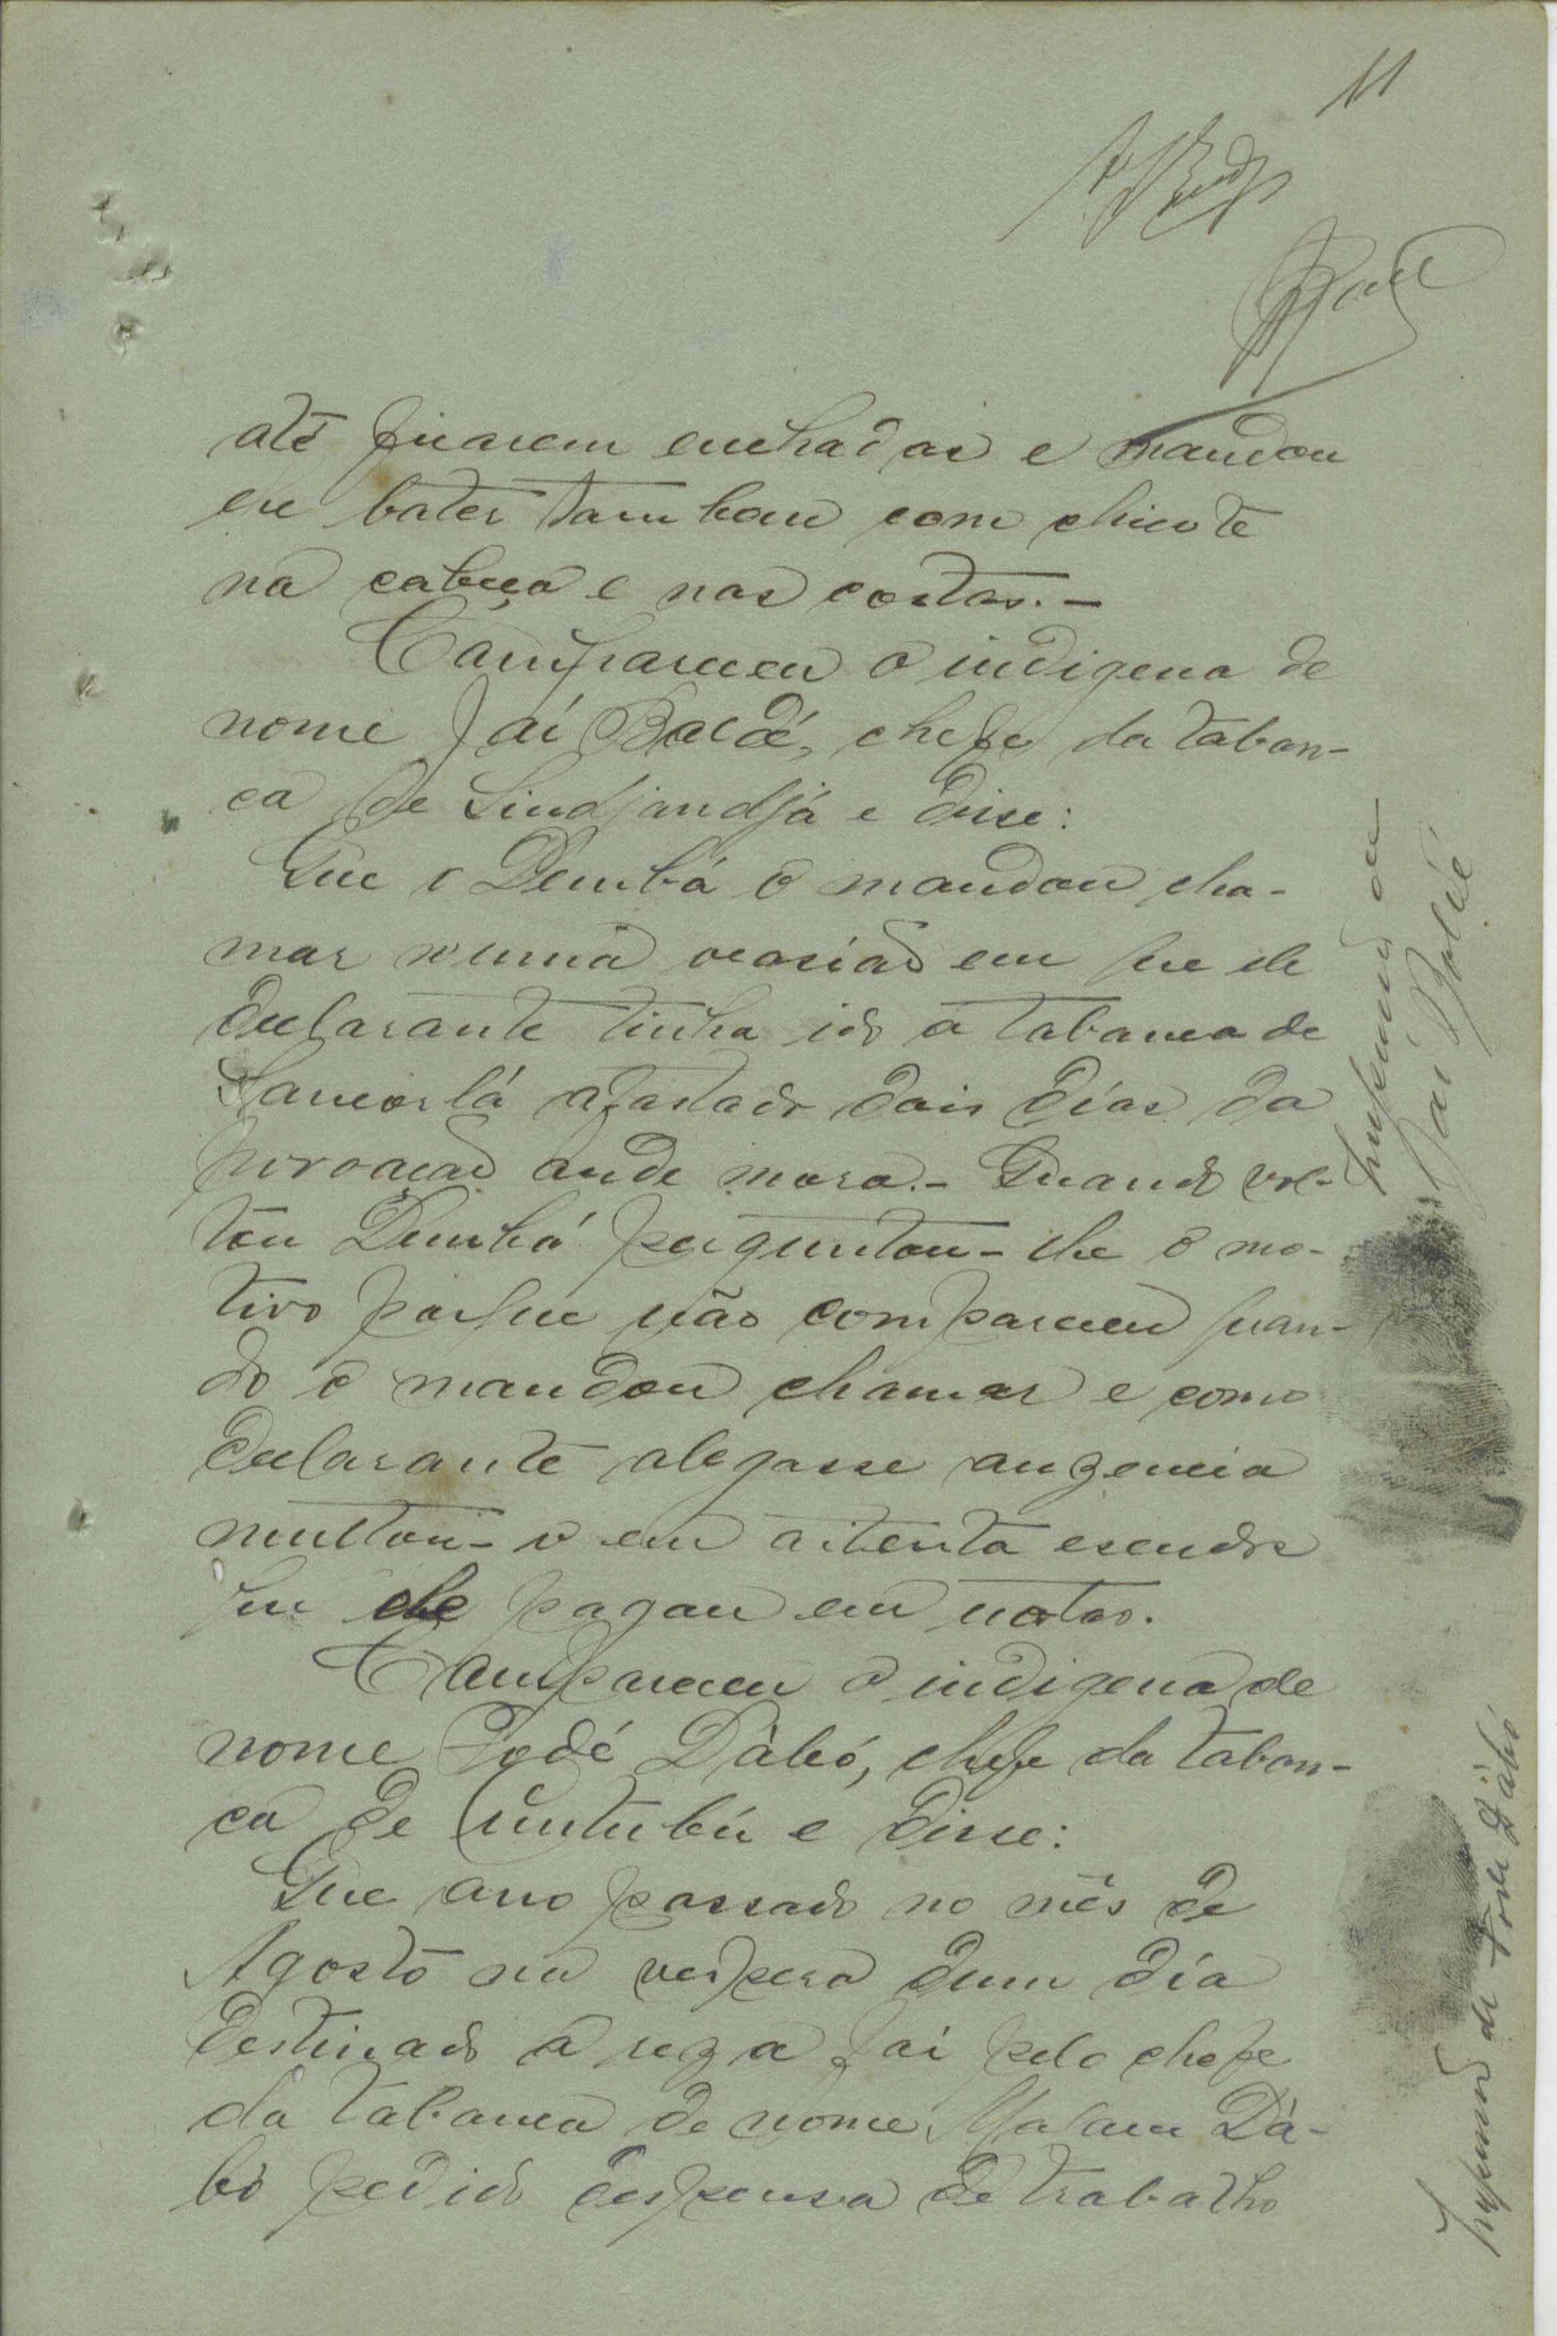 11
até ficarem enchadas e mandou
eu bater tambem com chicote
na cabeça e nas costas.-
Compareceu o indigena de
nome Jai Baldé, chefe da taban-
ca de Sindjandjá e disse:
Que o Dembá o mandou cha-
mar numa ocasião em que ele
declarante tinha ido a tabanca de
lá afastado dois dias da
povoação onde mora.- Quando vol-
tou Dembá perguntou-lhe o mo-
tivo porque não compareceu quan-
do o mandou chamar e como
declarante alegasse auzencia
multou-o em oitenta escudos
que ele pagou em notas.
Compareceu o indigena de
nome Fodé Dàbó, chefe da taban-
ca de Cuntubú e disse:
Que ano passado no mês de
Agosto na vespera dum dia
destinado a reza foi pelo chefe
da tabanca de nome Malam Dà-
bó pedido despensa de trabalho
Impressão de
Jai Baldé
Impressão de Fodé Dàbó